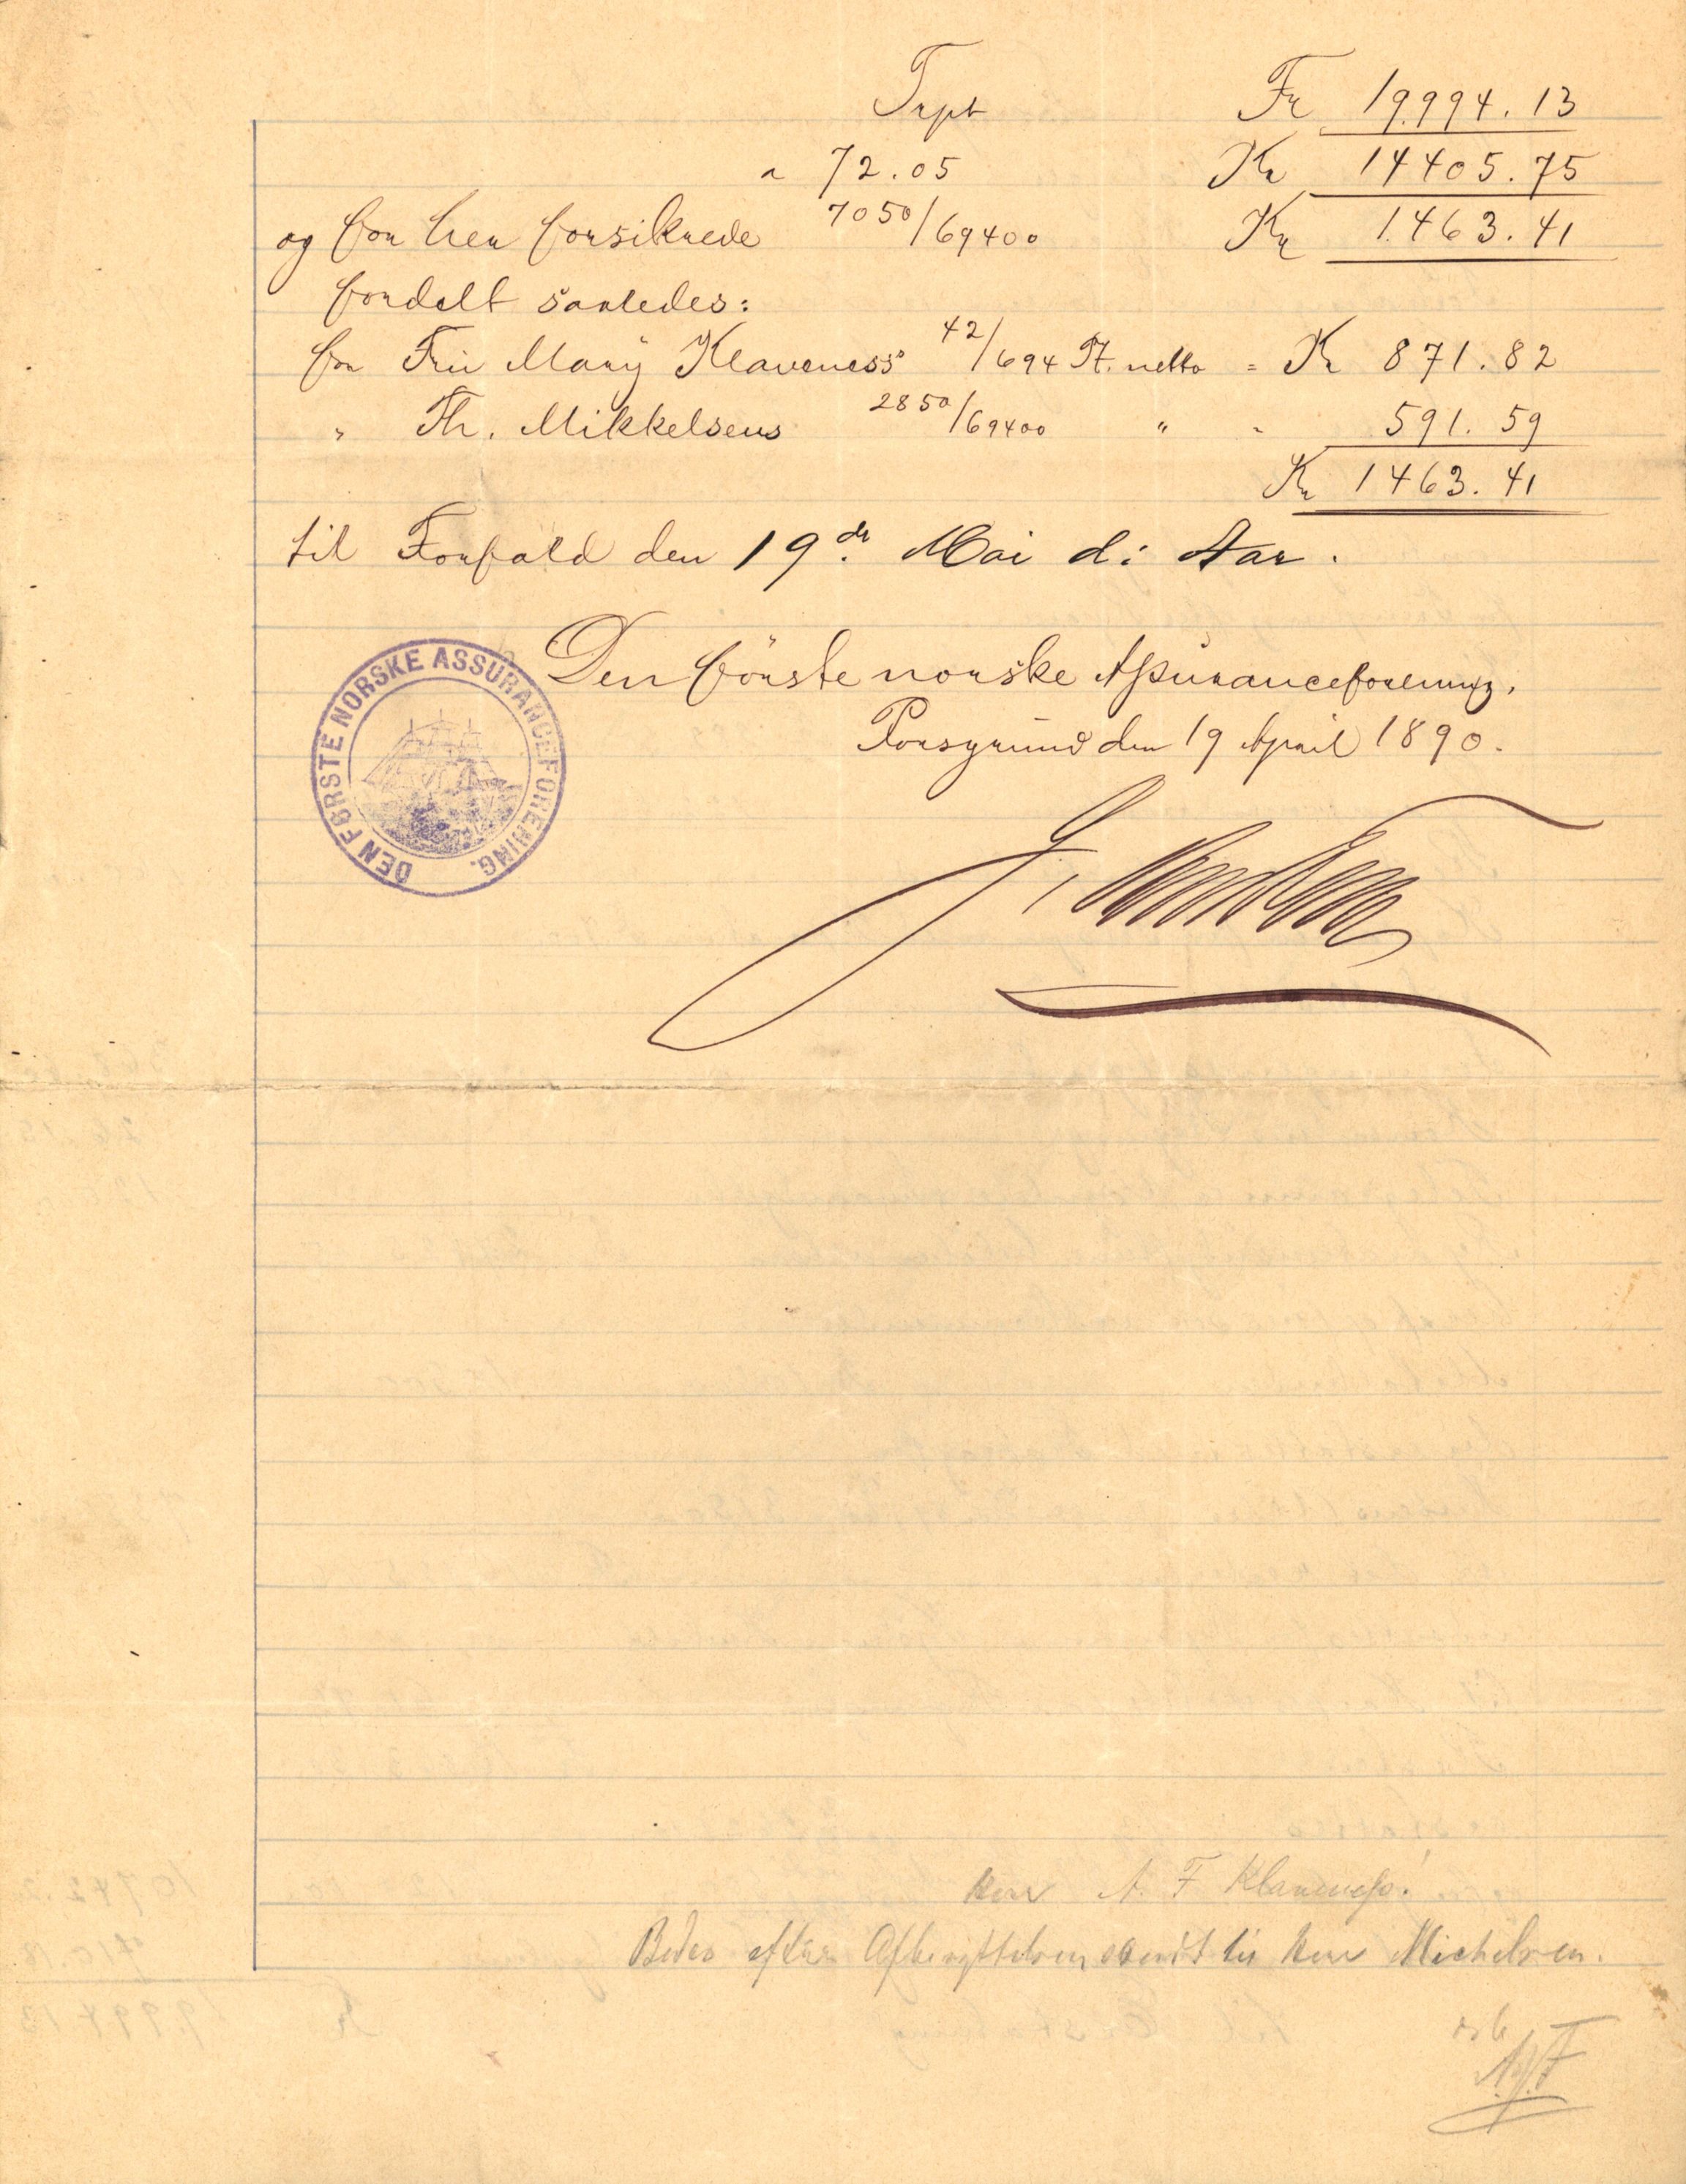 Trpt Fr 19994.13
a 72.05 Kr 14405.75
og for her forsikrede 7050/69400 Kr 1463.41
fordelt saaledes:
for Fru Mary Klaveness' 42/694 Pt. netto = Kr 871.82
" Th. Mikkelsens 2850/69400 " - 591.59
Kr 1463.41
til Forfald den 19de Mai d: Aar.
DEN FØRSTE NORSKE ASSURANCEFORENING.
Den förste norske Assuranceforening.
Porsgrund den 19 April 1890.
Herr A. F Klaveness.
Bedes efter Afbenyttelsen sendt til Herr Michelsen.